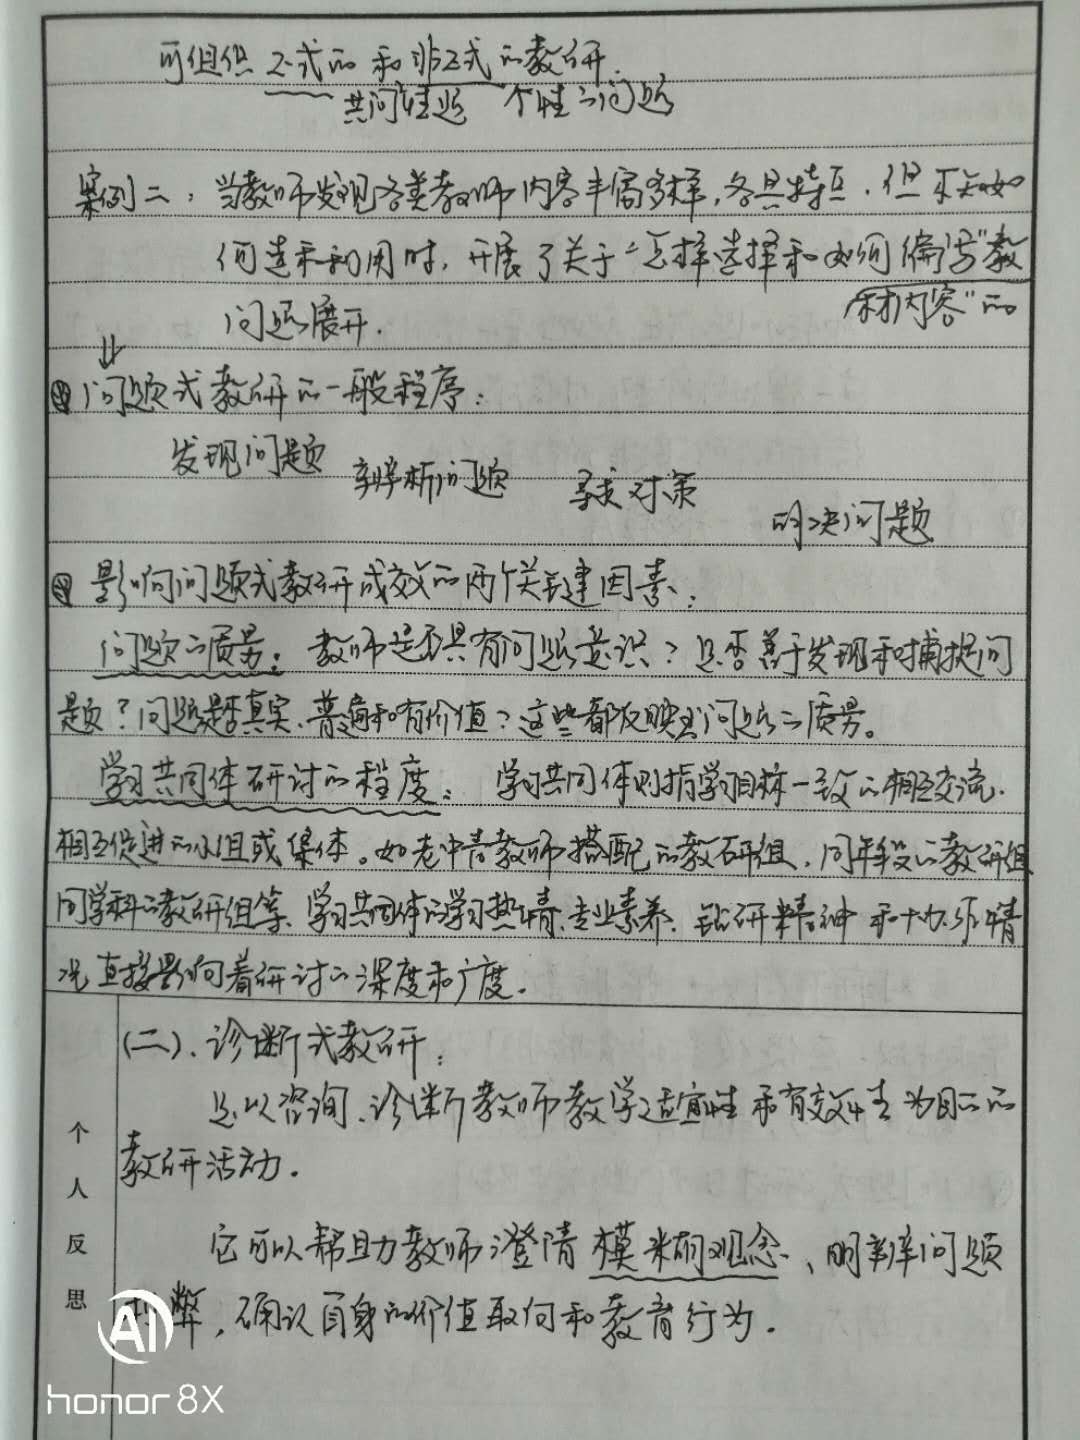 可组织正式的和非正式的教研.
共同性题 个性的问题
案例二：当教师发现各类教师内容丰富多样,各具特点.但不知如
何选和利用时,开展了关于“怎样选择和如何编写“教
材内容”的
问题展开.
问题式教研的一般程序：
发现问题
辨析问题
寻求对策
解决问题
影响问题式教研成效的两个关键因素:
问题的质量：教师是否具有问题意识？是否善于发现和捕捉问
题？问题是否真实、普遍和有价值？这些都反映出问题的质量。
学习共同体研讨的程度：学习共同体则指学习目标一致的相互交流.
相互促进的小组或集体。如老中青教师搭配的教研组.同年段的教研组
同学科的教研组等.学习共同体的学习热情、专业素养、钻研精神和协作情
况直接影响着研讨的深度和广度.
(二)、诊断式教研:
是以咨询、诊断教师教学适宜性和有效性为目的的
教研活动.
它可以帮助教师澄清模糊观念、明辨问题
利弊,确认自身的价值取向和教育行为.
个
人
反
思
AI
honor 8X